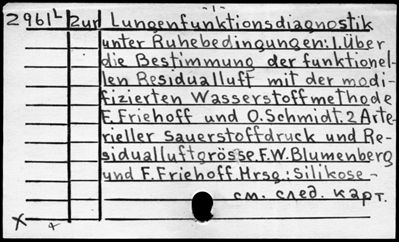 -1-
2961L Zur Lungenfunktionsdiagnostik
unter Ruhebedingungen: 1. Über
die Bestimmung der funktionel-
len Residualluft mit der modi-
fizierten Wasserstoffmethode
F. Friehoff und O. Schmidt. 2 Arte-
rieller Sauerstoffdruck und Re-
sidualluftgrösse. F. W. Blumenberg
und F. Friehoff. Hrsg.: Silikose-
см. след. карт.
X x